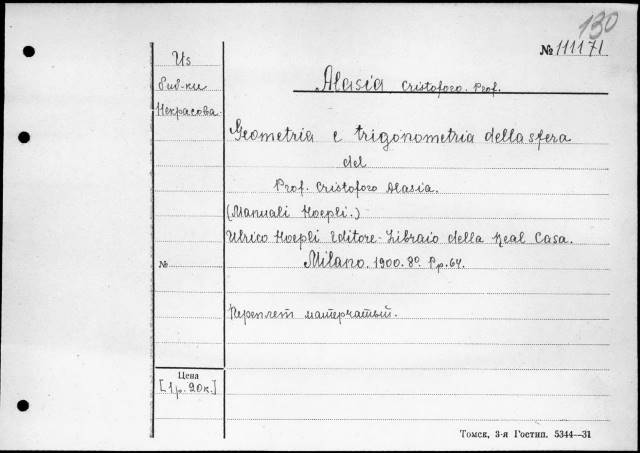 130
№ 111171
Из
биб-ки
Некрасова.
Alasia, Cristoforo. Prof.
Geometria e trigonometria della sfera
del
Prof. Cristoforo Alasia.
(Manuali Hoepli.)
Ulrico Hoepli Editore-Libraio della Real Casa.
Milano. 1900. 8º. Pp. 64.
№
Переплет матерчатый.
Цена
[1 р. 20 к.]
Томск, 3-я Гостип. 5344—31